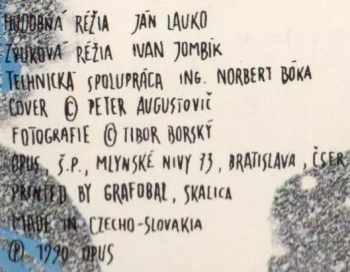 HUDOBNÁ RÉŽIA JÁN LAUKO
ZVUKOVÁ RÉŽIA IVAN JOMBÍK
TECHNICKÁ SPOLUPRÁCA ING. NORBERT BÓKA
COVER © PETER AUGUSTOVIČ
FOTOGRAFIE © TIBOR BORSKÝ
OPUS Š.P., MLYNSKÉ NIVY 73, BRATISLAVA, ČSFR
PRINTED BY GRAFOBAL, SKALICA
MADE IN CZECHO-SLOVAKIA
℗ 1990 OPUS